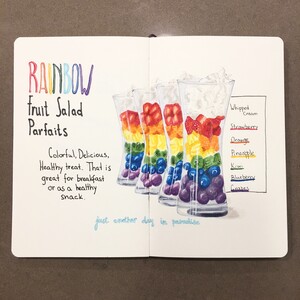 RAINBOW
Fruit Salad
Parfaits
Colorful, Delicious,
Healthy treat. That is
great for breakfast
or as a healthy
snack.
just another day in paradise
Whipped
Cream
Strawberry
Orange
Pineapple
Kiwi
Blueberry
Grapes